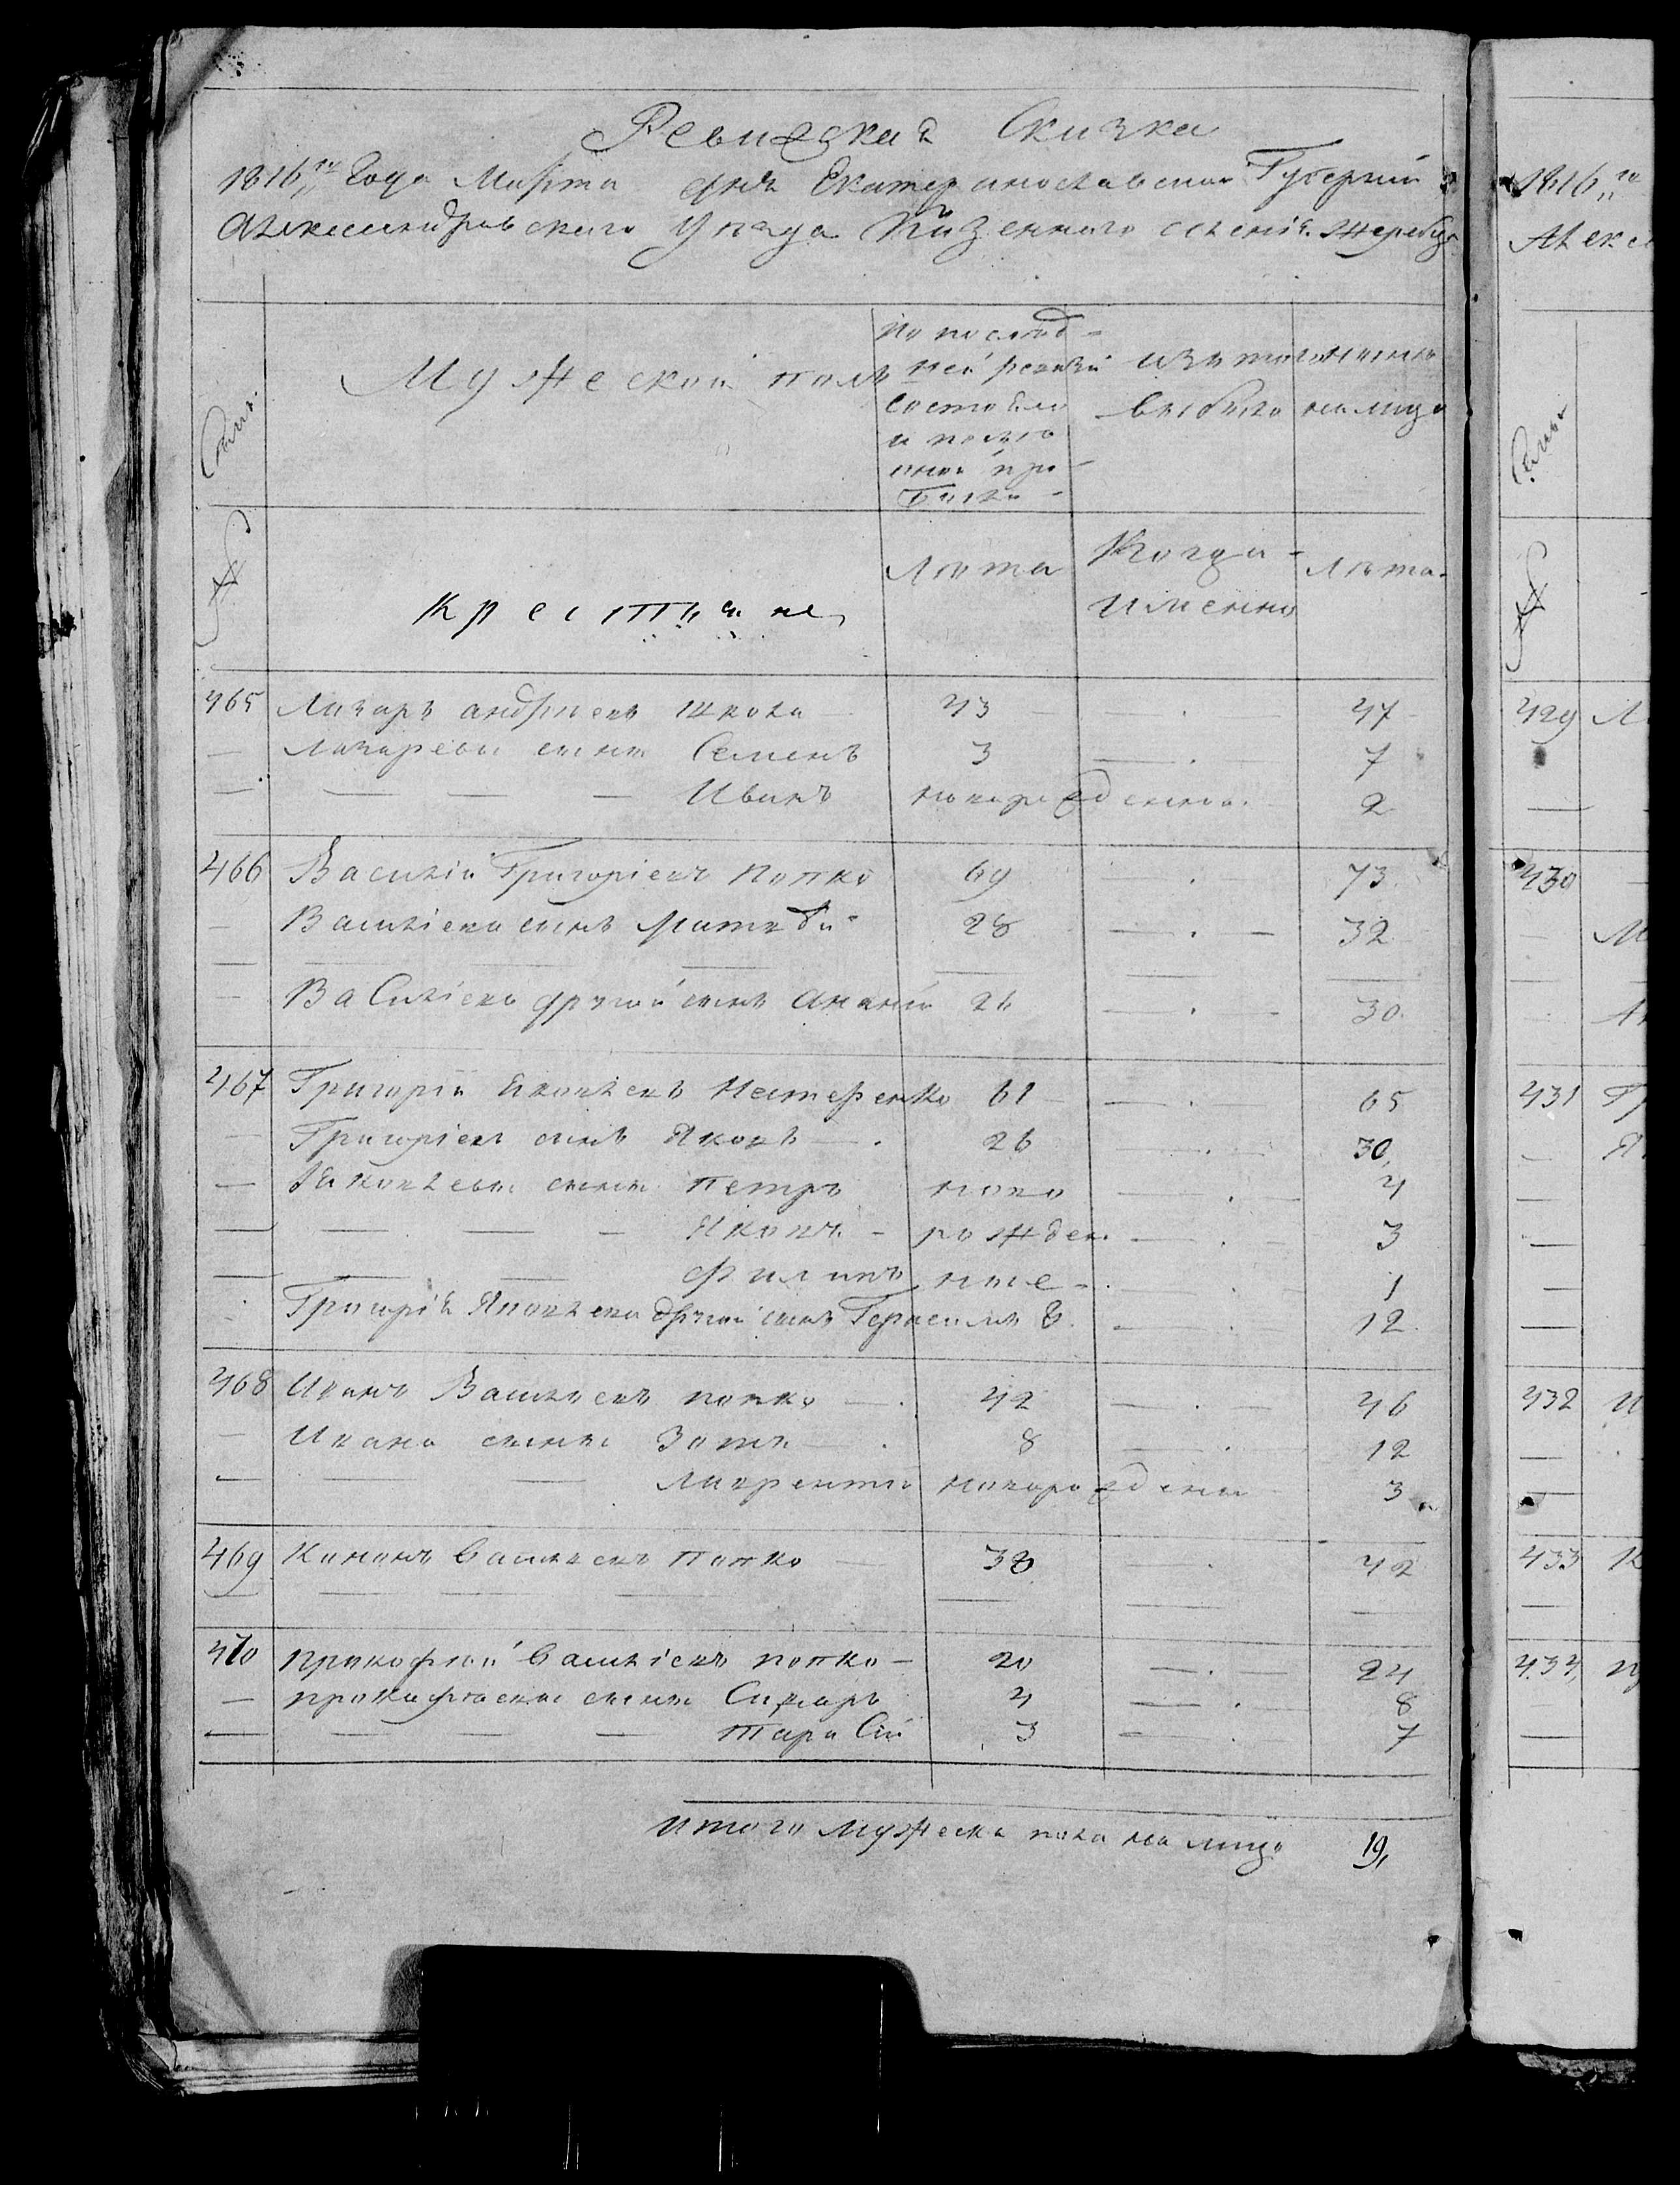 Ревизская Сказка
1816го Года Марта дня Екатеринославской Губернии
Александровского Уезда Казенного селения Жеребца
Мужеской полъ
По послед-
ней ревизии
состояло
и после
оной при-
было
изъ того
выбыло
ныне
на лицо
Семьи
№
Крестьяне
Лета
Когда
именно
Лета
465 Лазаръ андреевъ 43 — . — 47
— Лазаревы сыны Семенъ 3 — . — 7
— — — — Иванъ новорожденной 2
466 Василій Григоріевъ Попко 69 . 73
— Василіева сынъ Матвей 28 — . — 32
— Василіева другой сынъ Ананій 26 — . — 30
467 Григорій Яковлевъ Нестеренко 61 — . — 65
— Григоріевъ сынъ Яковъ — . 26 — . — 30
— Яковлевы сыны Петръ ново — . — 4
— — — — Яковъ - рожден — . — 3
— — — Филипъ ные - . . 1
. Григорія Яковлева другой сынъ Герасимъ 8 — . — 12
468 Иванъ Васильевъ попко — . 42 — . — 46
— Ивана сыны Зотъ . 8 — . — 12
— — — Лаврентий новорожденой 3
469 Кононъ Васильевъ Попко 38 — . — 42
470 Прокофей Василіевъ попко — 20 — . — 24
— прокофиевы сыны Сидаръ 4 — . 8
— — — — Тарасій 3 — . 7
итого мужеска пола на лицо 19
1816го
Алекс
Семьи
№
429 Л
430
М
Ан
431 Гр
Я
432 И
433 К
434 п